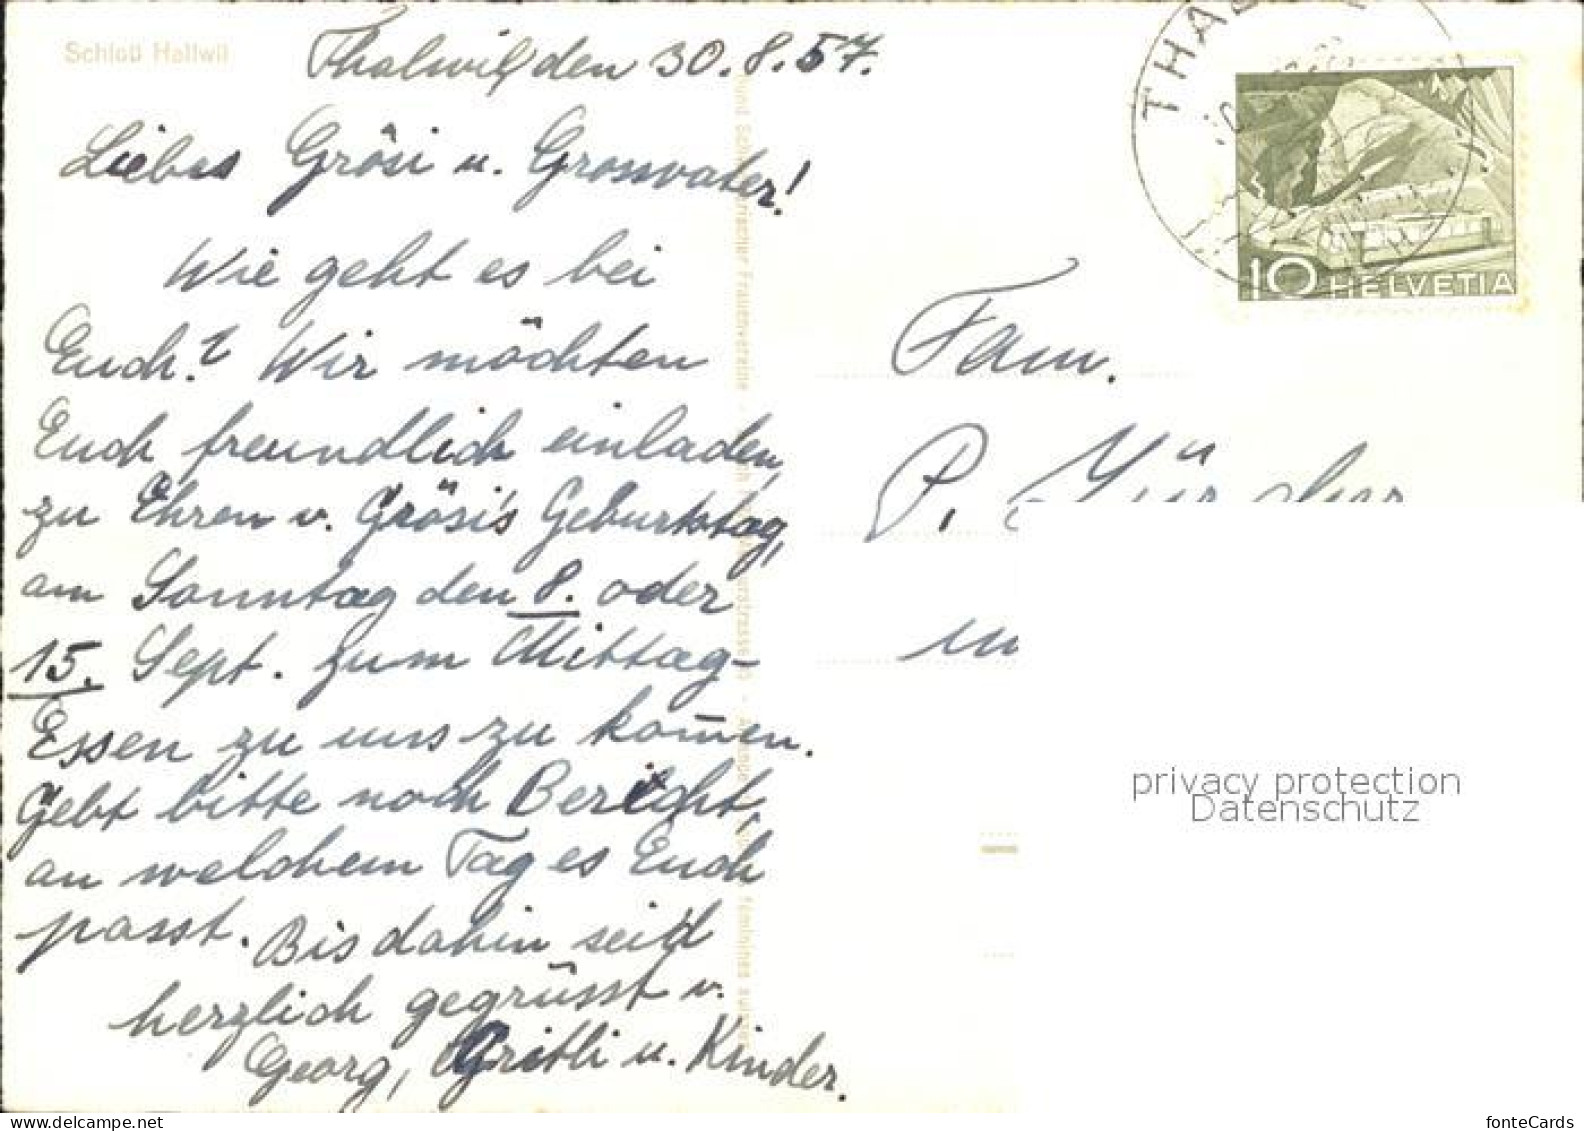 Schloß Hallwil
Thalwil, den 30.8.57.
Liebes Grösi u. Grossvater!
Wie geht es bei
Euch? Wir möchten
Euch freundlich einladen,
zu Ehren v. Grösi's Geburtstag,
am Sonntag den 8. oder
15. Sept. zum Mittag-
Essen zu uns zu kom̄en.
Gebt bitte noch Bericht,
an welchem Tag es Euch
passt. Bis dahin seid
herzlich gegrüsst v.
Georg, Gritli u. Kinder.
Schweizerischer Frauenvereine
THA
10 HELVETIA
Fam.
P. Zürcher
in
privacy protection
Datenschutz
www.delcampe.net
fonteCards